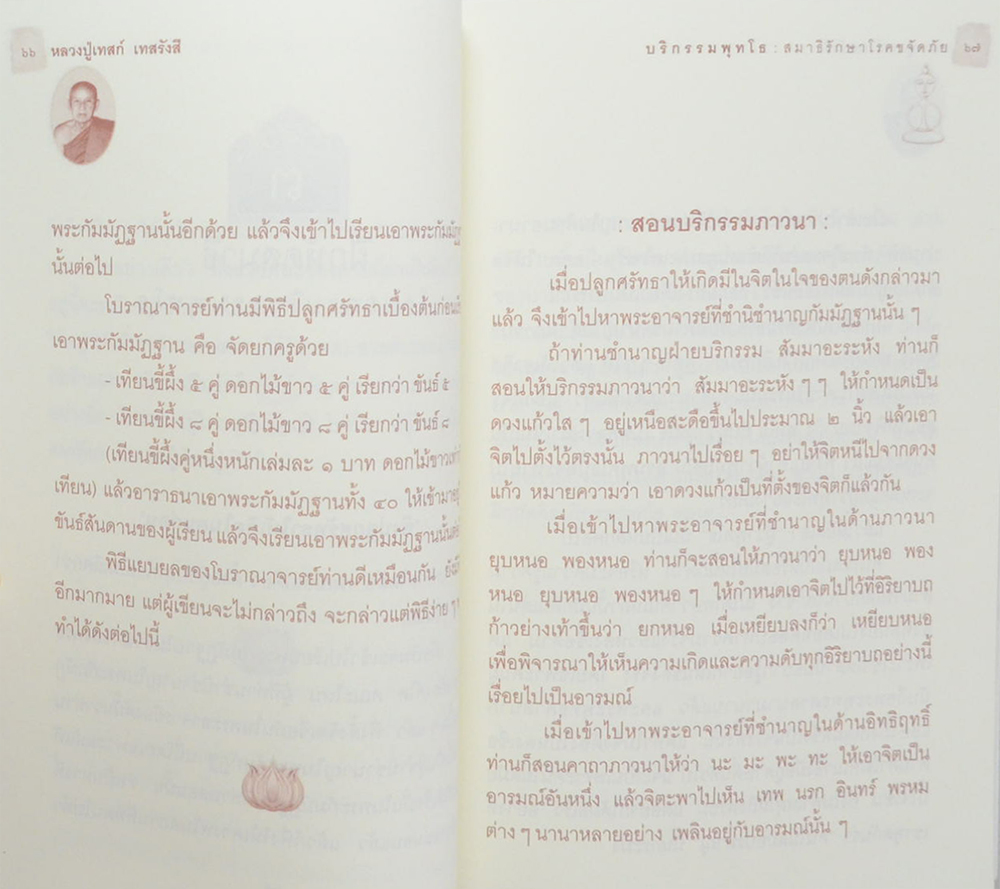 ๖๖ หลวงปู่เทสก์ เทสรังสี
พระกัมมัฏฐานนั้นอีกด้วย แล้วจึงเข้าไปเรียนเอาพระกัมมัฏ
นั้นต่อไป
โบราณาจารย์ท่านมีพิธีปลูกศรัทธาเบื้องต้นก่อน
เอาพระกัมมัฏฐาน คือ จัดยกครูด้วย
- เทียนขี้ผึ้ง ๕ คู่ ดอกไม้ขาว ๕ คู่ เรียกว่า ขันธ์ ๕
- เทียนขี้ผึ้ง ๘ คู่ ดอกไม้ขาว ๘ คู่ เรียกว่า ขันธ์ ๘
(เทียนขี้ผึ้งคู่หนึ่งหนักเล่มละ ๑ บาท ดอกไม้ขาว
เทียน) แล้วอาราธนาเอาพระกัมมัฏฐานทั้ง ๔๐ ให้เข้ามา
ขันธ์สันดานของผู้เรียน แล้วจึงเรียนเอาพระกัมมัฏฐานนั้น
พิธีแยบยลของโบราณาจารย์ท่านดีเหมือนกัน
อีกมากมาย แต่ผู้เขียนจะไม่กล่าวถึง จะกล่าวแต่พิธีง่าย ๆ
ทำได้ดังต่อไปนี้
บริกรรมพุทโธ : สมาธิรักษาโรคขจัดภัย ๖๗
: สอนบริกรรมภาวนา :
เมื่อปลูกศรัทธาให้เกิดมีในจิตในใจของตนดังกล่าวมา
แล้ว จึงเข้าไปหาพระอาจารย์ที่ชำนิชำนาญกัมมัฏฐานนั้น ๆ
ถ้าท่านชำนาญฝ่ายบริกรรม สัมมาอะระหัง ท่านก็
สอนให้บริกรรมภาวนาว่า สัมมาอะระหัง ๆ ๆ ให้กำหนดเป็น
ดวงแก้วใส ๆ อยู่เหนือสะดือขึ้นไปประมาณ ๒ นิ้ว แล้วเอา
จิตไปตั้งไว้ตรงนั้น ภาวนาไปเรื่อย ๆ อย่าให้จิตหนีไปจากดวง
แก้ว หมายความว่า เอาดวงแก้วเป็นที่ตั้งของจิตก็แล้วกัน
เมื่อเข้าไปหาพระอาจารย์ที่ชำนาญในด้านภาวนา
ยุบหนอ พองหนอ ท่านก็จะสอนให้ภาวนาว่า ยุบหนอ พอง
หนอ ยุบหนอ พองหนอ ๆ ให้กำหนดเอาจิตไปไว้ที่อิริยาบถ
ก้าวย่างเท้าขึ้นว่า ยกหนอ เมื่อเหยียบลงก็ว่า เหยียบหนอ
เพื่อพิจารณาให้เห็นความเกิดและความดับทุกอิริยาบถอย่างนี้
เรื่อยไปเป็นอารมณ์
เมื่อเข้าไปหาพระอาจารย์ที่ชำนาญในด้านอิทธิฤทธิ์
ท่านก็สอนคาถาภาวนาให้ว่า นะ มะ พะ ทะ ให้เอาจิตเป็น
อารมณ์อันหนึ่ง แล้วจิตะพาไปเห็น เทพ นรก อินทร์ พรหม
ต่าง ๆ นานาหลายอย่าง เพลินอยู่กับอารมณ์นั้น ๆ